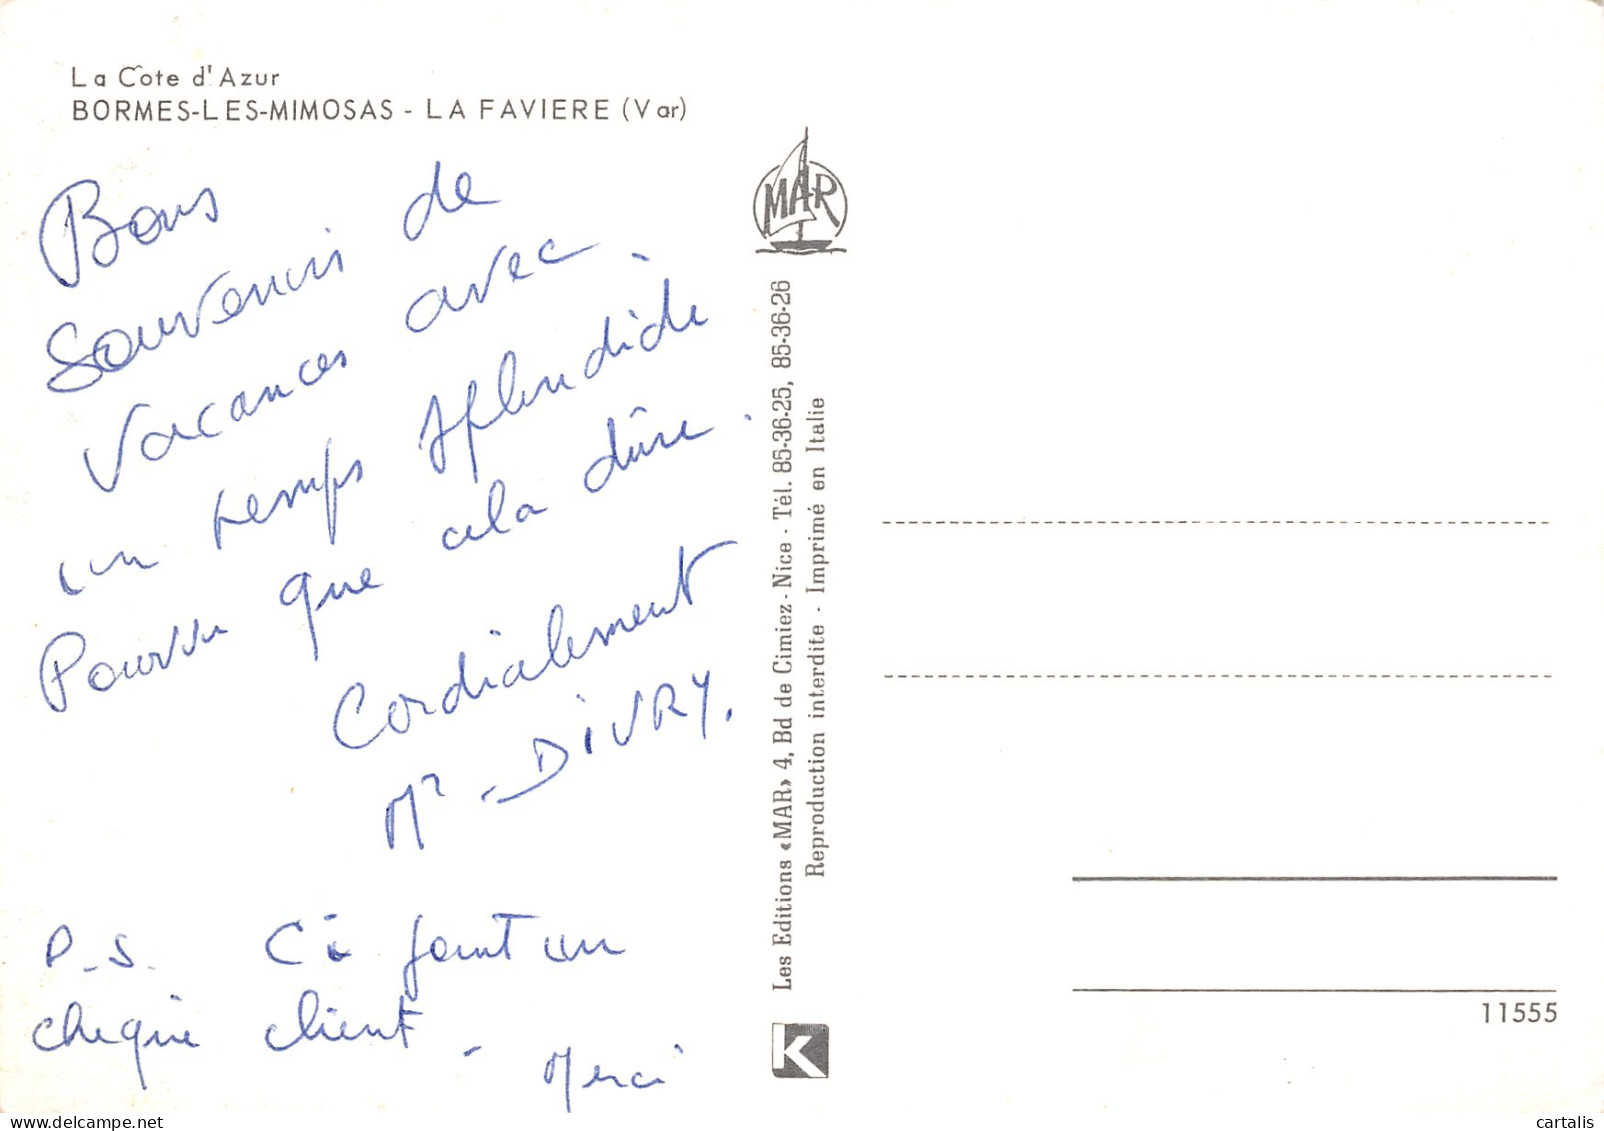 La Côte d'Azur
BORMES-LES-MIMOSAS - LA FAVIERE (Var)
Bons
souvenirs de
vacances avec
un temps splendide
Pourvu que cela dure.
Cordialement
Mr - DiVRY.
P.S. Ci joint un
cheque client
- Merci
MAR
Les Editions «MAR» 4, Bd de Cimiez - Nice - Tél. 85-36-25, 85-36-26
Reproduction interdite - Imprimé en Italie
K
11555
cartalis